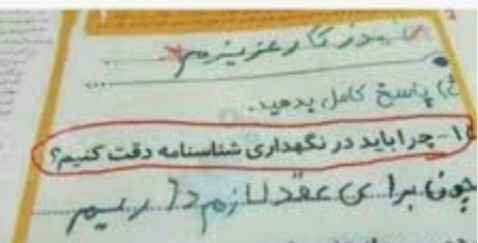 آموزگار عزیزم
ث) پاسخ کامل بدهید.
۱- چرا باید در نگهداری شناسنامه دقت کنیم؟
چون برای عقد لازم داریم